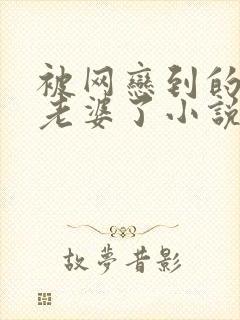 被网恋到的
老婆了小說
故夢昔影